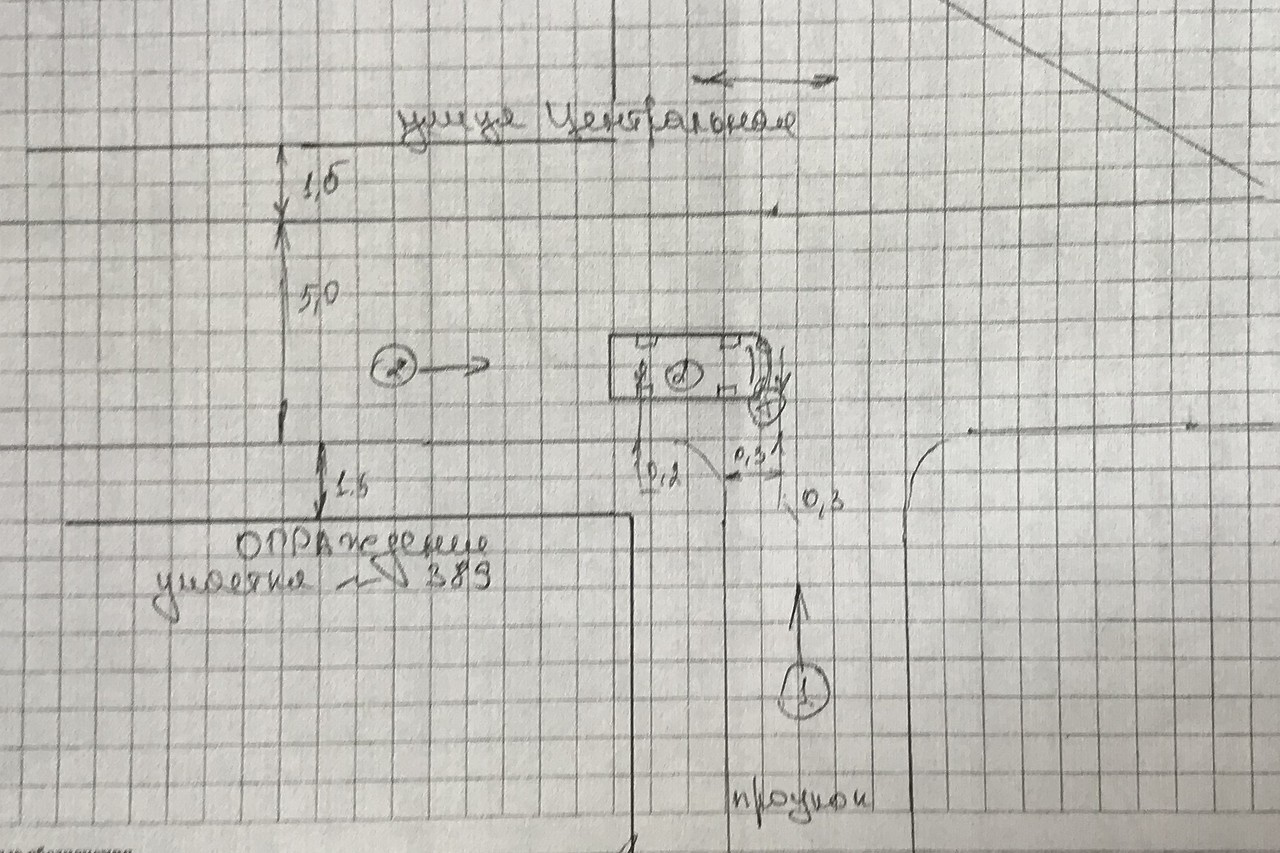 улица Центральная
1,5
5,0
2
2
0,3
0,2
0,3
1.5
ограждение
участка № 389
1
проулок